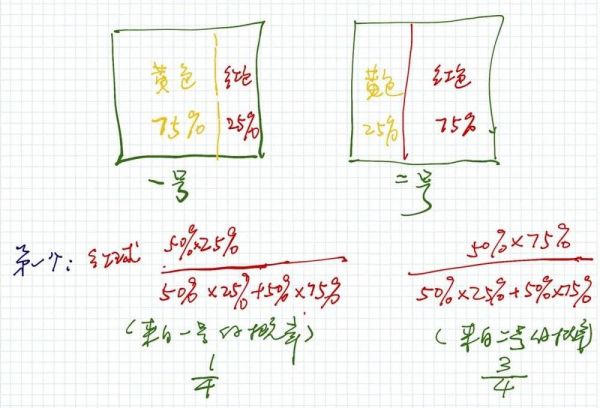 黄色 红色 黄色 红色
75% 25% 25% 75%
一号 二号
第一个: 红球 50%×25% / 50%×25%+50%×75% 50%×75% / 50%×25%+50%×75%
(来自一号的概率) (来自二号的概率)
1/4 3/4